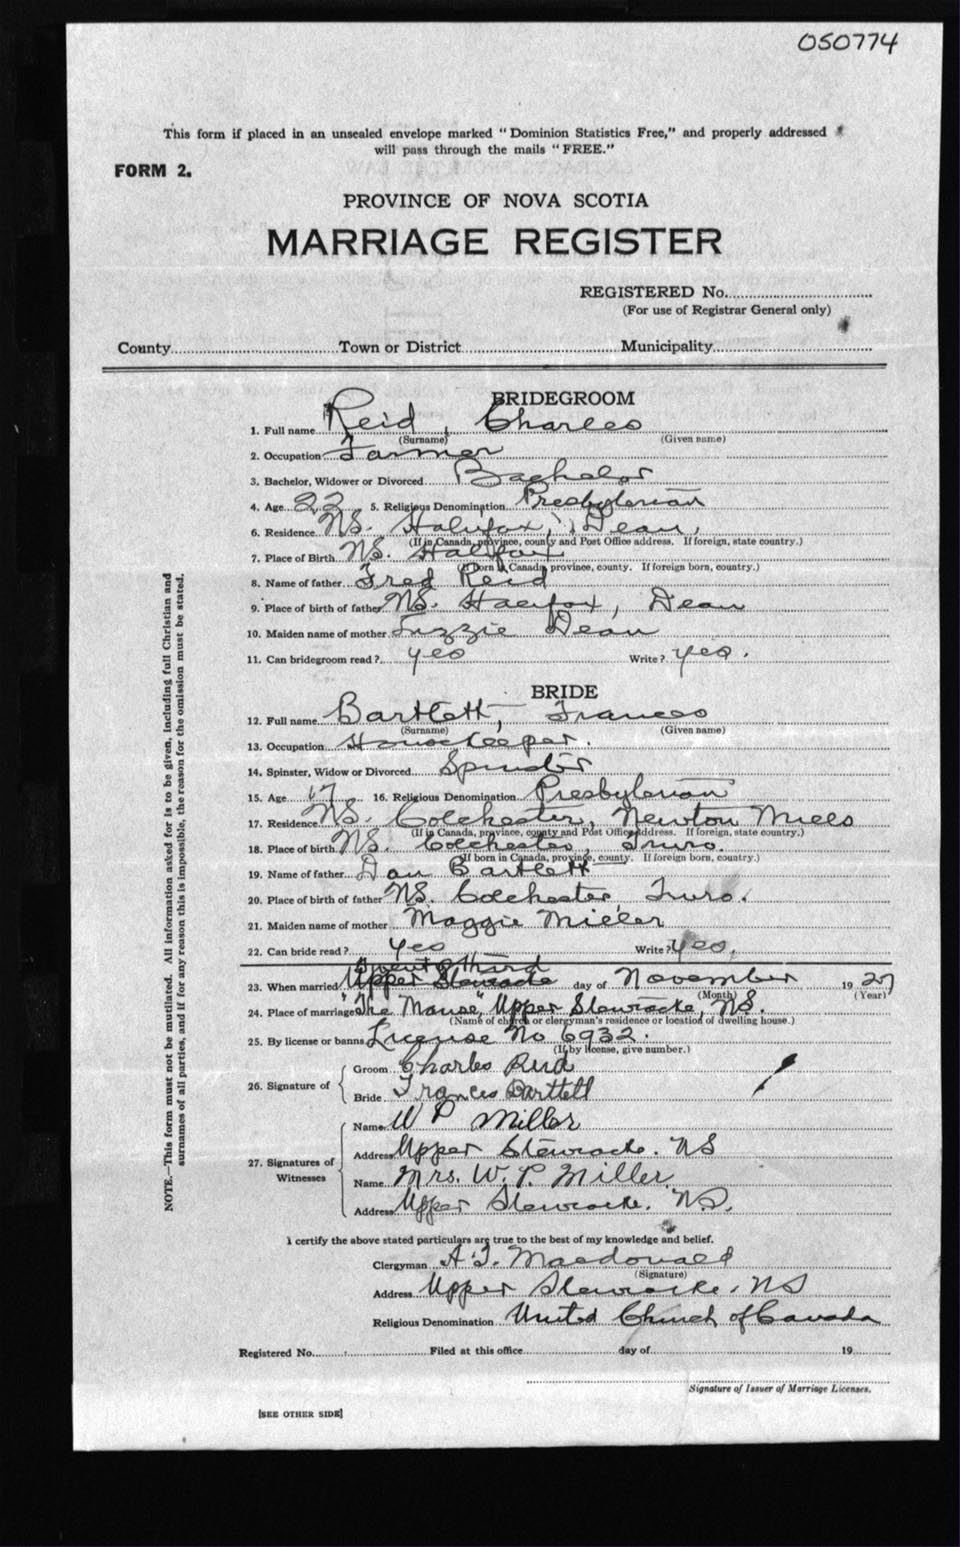 050774
This form if placed in an unsealed envelope marked "Dominion Statistics Free," and properly addressed
will pass through the mails "FREE."
FORM 2.
PROVINCE OF NOVA SCOTIA
MARRIAGE REGISTER
REGISTERED No.
(For use of Registrar General only)
County Town or District Municipality
BRIDEGROOM
1. Full name Reid, Charles
(Surname) (Given name)
2. Occupation Farmer
3. Bachelor, Widower or Divorced Bachelor
4. Age 22 5. Religious Denomination Presbyterian
6. Residence NS. Halifax, Dean,
(If in Canada, province, county and Post Office address. If foreign, state country.)
7. Place of Birth NS. Halifax
(If born in Canada, province, county. If foreign born, country.)
8. Name of father Fred Reid
9. Place of birth of father NS. Halifax, Dean
10. Maiden name of mother Lizzie Dean
11. Can bridegroom read? yes Write? yes.
BRIDE
12. Full name Bartlett, Frances
(Surname) (Given name)
13. Occupation Housekeeper.
14. Spinster, Widow or Divorced Spinster
15. Age 17 16. Religious Denomination Presbyterian
17. Residence NS. Colchester, Newton Mills
(If in Canada, province, county and Post Office address. If foreign, state country.)
18. Place of birth NS. Colchester, Truro.
(If born in Canada, province, county. If foreign born, country.)
19. Name of father Dan Bartlett
20. Place of birth of father NS. Colchester, Truro.
21. Maiden name of mother Maggie Miller
22. Can bride read? yes Write? yes.
Twenty third
23. When married Upper Stewiacke day of November 1927
(Month) (Year)
24. Place of marriage "The Manse", Upper Stewiacke, NS.
(Name of church or clergyman's residence or location of dwelling house.)
25. By license or banns License No 6932.
(If by license, give number.)
26. Signature of
Groom Charles Reid
Bride Frances Bartlett
27. Signatures of Witnesses
Name W P Miller
Address Upper Stewiacke. NS
Name Mrs. W. P. Miller
Address Upper Stewiacke. NS.
I certify the above stated particulars are true to the best of my knowledge and belief.
Clergyman A. T. Macdonald
(Signature)
Address Upper Stewiacke. NS
Religious Denomination United Church of Canada
Registered No. Filed at this office day of 19
Signature of Issuer of Marriage Licenses.
[SEE OTHER SIDE]
NOTE.—This form must not be mutilated. All information asked for is to be given, including full Christian and
surnames of all parties, and if for any reason this is impossible, the reason for the omission must be stated.